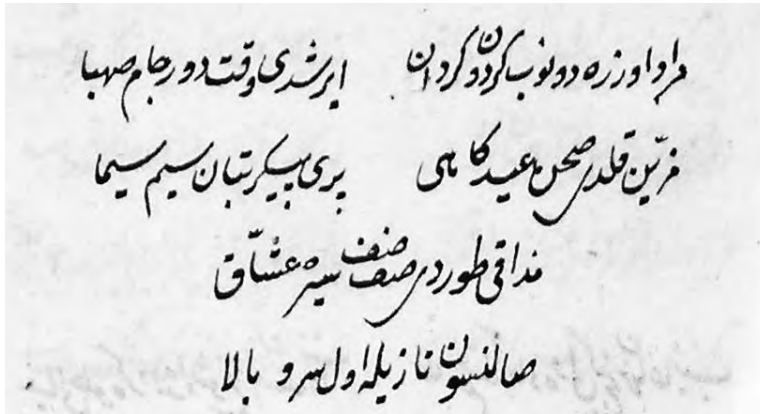 مراد اوزره دونوب گردون گردان ایرشدی وقت دور جام صهبا
مزیّن قلدی صحن عیدکاهی پری پیکر بتان سیم سیما
مذاقی طوردی صف صف سیره عشّاق
صالنسون نازیله اول سرو بالا